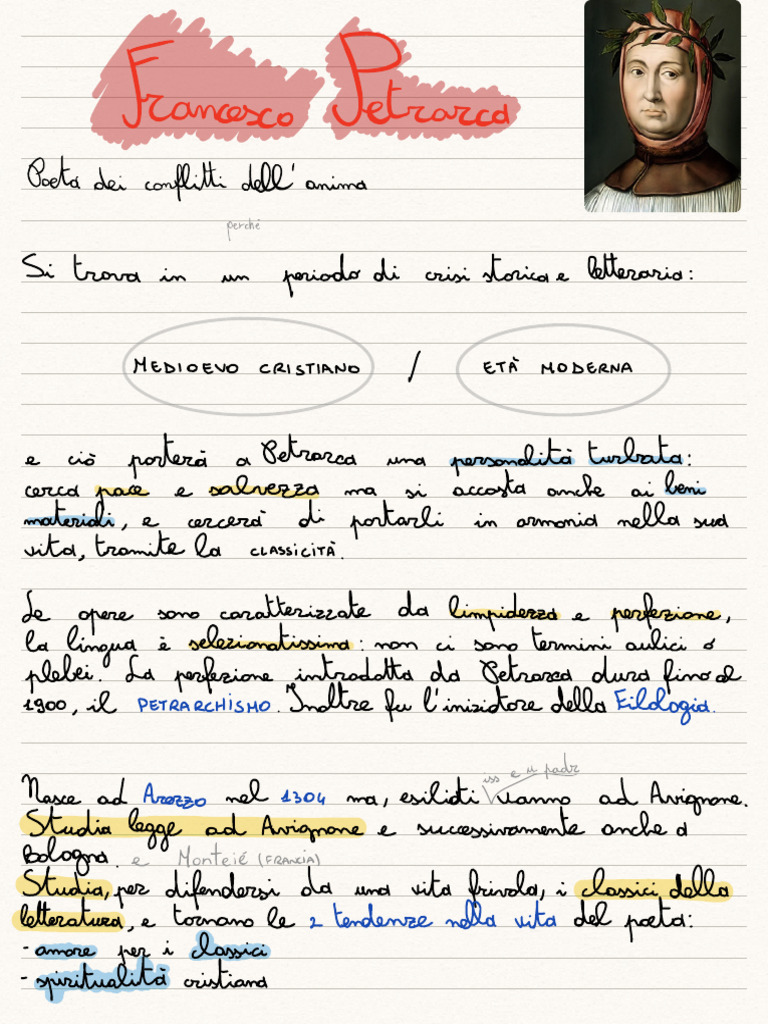 Francesco Petrarca
Poeta dei conflitti dell'anima
perché
Si trova in un periodo di crisi storica e letteraria:
MEDIOEVO CRISTIANO / ETÀ MODERNA
e ciò porterà a Petrarca una personalità turbata:
cerca pace e salvezza ma si accosta anche ai beni
materiali, e cercerà di portarli in armonia nella sua
vita, tramite la CLASSICITÀ.
Le opere sono caratterizzate da limpidezza e perfezione,
la lingua è selezionatissima: non ci sono termini aulici o
plebei. La perfezione introdotta da Petrarca dura fino al
1900, il PETRARCHISMO. Inoltre fu l'iniziatore della Filologia.
e il padre
Nasce ad Arezzo nel 1304 ma, esiliati vanno ad Avignone.
Studia legge ad Avignone e successivamente anche a
Bologna. e (FRANCIA)
Studia, per difendersi da una vita frivola, i classici della
letteratura, e tornano le 2 tendenze nella vita del poeta:
- amore per i classici
- spiritualità cristiana